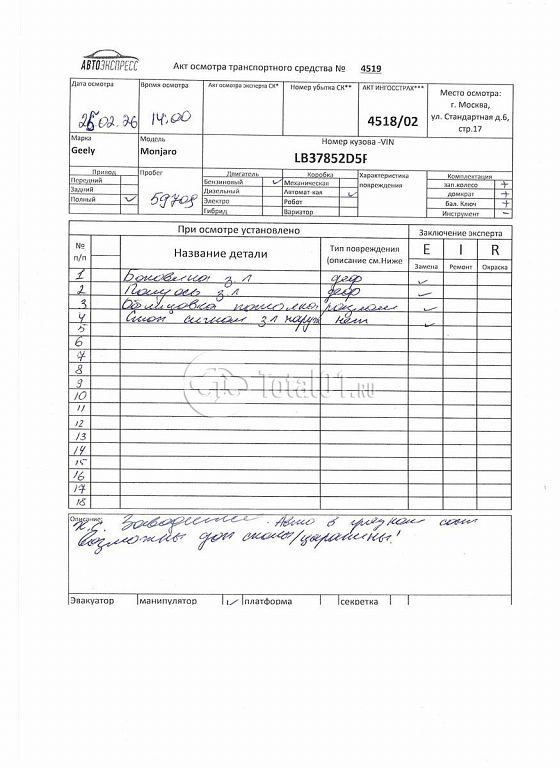 АВТОЭКСПРЕСС
Акт осмотра транспортного средства № 4519
Дата осмотра Время осмотра Акт осмотра эксперта СК* Номер убытка СК** АКТ ИНГОССТРАХ*** Место осмотра:
26.02.26 14:00 4518/02 г. Москва,
ул. Стандартная д.6,
стр.17
Марка Модель Номер кузова -VIN
Geely Monjaro LB37852D5F
Привод Пробег Двигатель Коробка Характеристика повреждения Комплектация
Передний Бензиновый ✓ Механическая зап.колесо +
Задний 59709 Дизельный Автомат-кая ✓ домкрат +
Полный ✓ Электро Робот бал. Ключ +
Гибрид Вариатор Инструмент −
При осмотре установлено Заключение эксперта
№ п/п Название детали Тип повреждения (описание см.Ниже E I R
Замена Ремонт Окраска
1 Боковина з л деф ✓
2 Полуось з л деф ✓
3 Облицовка потолка разлом ✓
4 Стоп сигнал з л наруж нет ✓
5
6
7
8
9
10
11
12
13
14
15
16
17
18
Total01.RU
Описание:
Н.С. Заводится. Авто в грязном сост
Возможны доп сколы/царапины!
Эвакуатор манипулятор ✓ платформа секретка